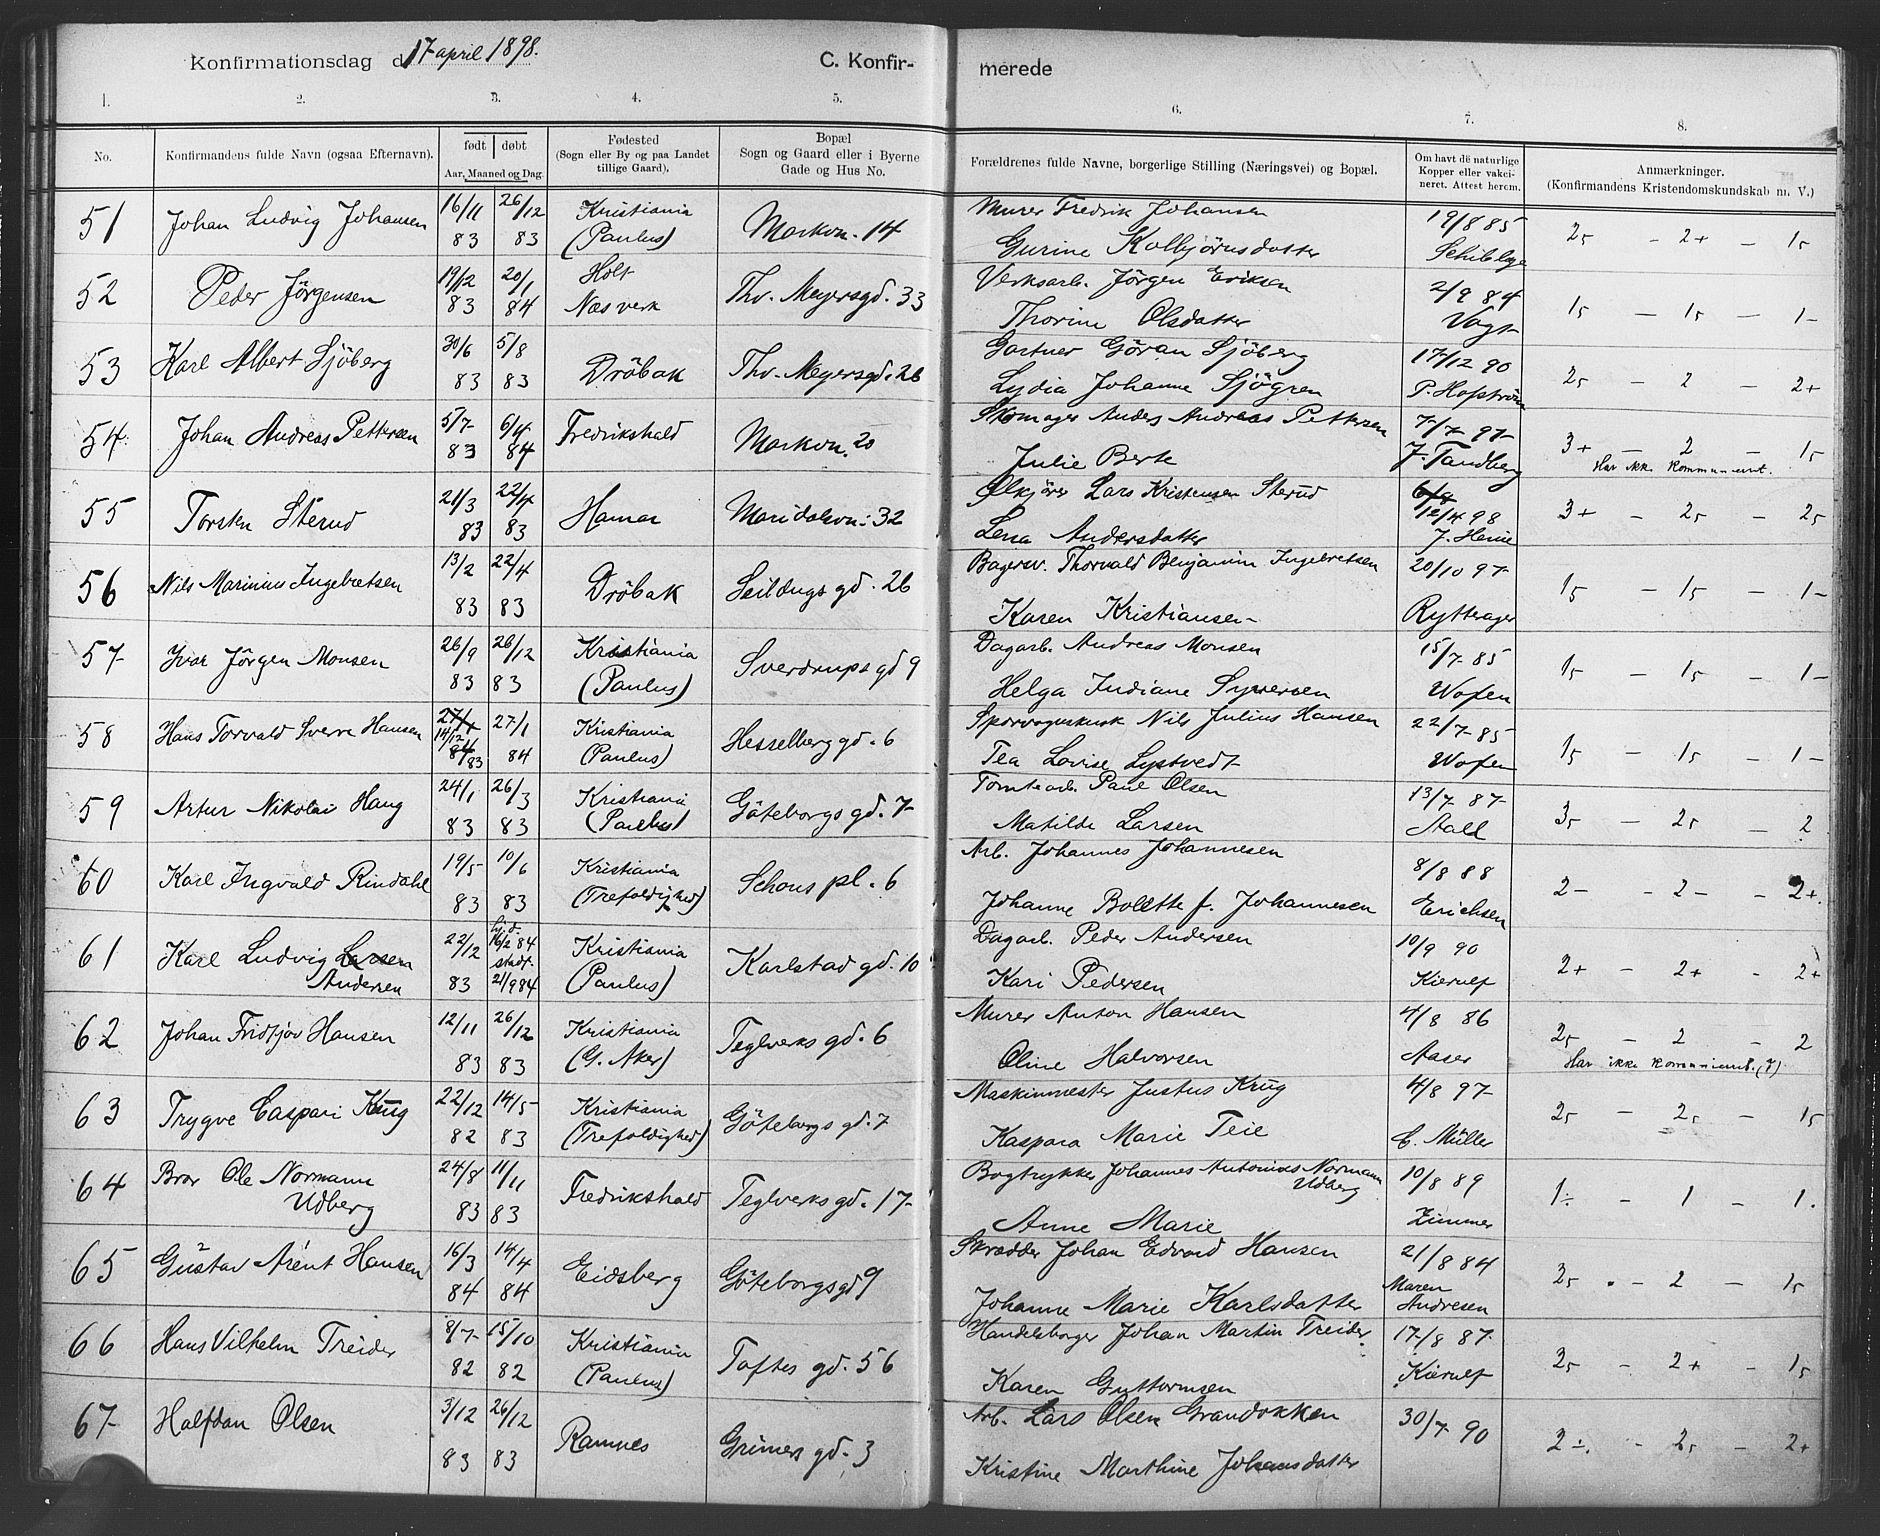 Konfirmationsdag d. 17 april 1898.
C. Konfir-
merede
1. 2. 3. 4. 5. 6. 7. 8.
No.
Konfirmandens fulde Navn (ogsaa Efternavn).
født | døbt
Aar, Maaned og Dag.
Fødested
(Sogn eller By og paa Landet
tillige Gaard).
Bopæl
Sogn og Gaard eller i Byerne
Gade og Hus No.
Forældrenes fulde Navne, borgerlige Stilling (Næringsvei) og Bopæl.
Om havt de naturlige
Kopper eller vakci-
neret. Attest herom.
Anmærkninger.
(Konfirmandens Kristendomskundskab m. V.)
51 Johan Ludvig Johansen 16/11 83 26/12 83 Kristiania (Paulus) Markvn. 14
Murer Fredrik Johansen 19/8 85
Gurine Kolbjørnsdatter
52 Peder Jörgensen 19/12 83 20/1 84 Holt Næs verk Thv. Meyersgd. 33
Verksarb. Jörgen Eriksen 2/9 84
Thorine Olsdatter Vogt
53 Karl Albert Sjöberg 30/6 83 5/8 83 Dröbak Thv. Meyersgd. 26
Gartner Göran Sjöberg 17/12 90
Lydia Johanne Sjögren P. Hofström
54 Johan Andreas Pettersen 5/7 83 6/4 84 Fredrikshald Markvn. 20
Skomager Anders Andreas Pettersen 7/7 97
Julie Berte J. Tandberg
3+ – 2 – 15
Har ikke kommunicert.
55 Torsten Sterud 21/3 83 22/4 83 Hamar Maridalsvn. 32
Ølkjører Lars Kristensen Sterud 12/4 98
Lena Andersdatter
56 Nils Marinius Ingebretsen 13/2 83 22/4 83 Dröbak Seildugsgd. 26
Bagersv. Thorvald Benjamin Ingebretsen 20/10 97
Karen Kristiansen Rytterager
57 Yvar Jörgen Monsen 26/9 83 26/12 83 Kristiania (Paulus) Sverdrups gd 9
Dagarb. Andreas Monsen 15/7 85
Helga Indiane Syversen
58 Hans Torvald Sverre Hansen 27/1 14/12 84/83 27/1 84 Kristiania (Paulus) Hesselberg gd. 6
Sporvognskusk Nils Julius Hansen 22/7 85
Tea Lovise Lystvedt
59 Artur Nikolai Haug 24/1 83 26/3 83 Kristiania (Paulus) Göteborgs gd. 7
Tomtearb. Paul Olsen 13/7 87
Matilde Larsen
60 Karl Ingvald Rindahl 19/5 83 10/6 83 Kristiania (Trefoldighed) Schous pl. 6
Arb. Johannes Johannesen 8/8 88
Johanne Bolette f. Johannesen Erichsen
2– – 2– – 2+
61 Karl Ludvig Larsen 22/12 83 hj.d. 16/2 84 stadf. 21/9 84 Kristiania (Paulus) Karlstad gd. 10
Andersen
Dagarb. Peder Andersen 10/9 90
Kari Pedersen Kierulf
2+ – 2+ – 2+
62 Johan Fridtjov Hansen 12/11 83 26/12 83 Kristiania (G. Aker) Teglverks gd. 6
Murer Anton Hansen 4/8 86
Oline Halvorsen Aaser
25 – 2 – 2
Har ikke kommunicert.
63 Trygve Caspari Krug 22/12 82 14/5 83 Kristiania (Trefoldighed) Göteborgs gd. 7
Maskinmester Justus Krug 4/8 97
Kaspara Marie Teie C. Müller
25 – 25 – 15
64 Bror Ole Normann 24/8 83 11/11 83 Fredrikshald Teglverks gd. 17
Udberg
Bogtrykker Johannes Antonius Normann 10/8 89
Udberg
Anne Marie Zimmer
1÷ – 1 – 1.
65 Gustav Arent Hansen 16/3 84 14/4 84 Eidsberg Göteborgsgd 9
Skrædder Johan Edvard Hansen 21/8 84
Johanne Marie Karlsdatter Maren Andresen
25 – 2 – 15
66 Hans Vilhelm Treider 8/7 82 15/10 82 Kristiania (Paulus) Toftes gd. 56
Handelsborger Johan Martin Treider 17/8 87
Karen Guttormsen Kierulf
25 – 2+ – 15
67 Halfdan Olsen 3/12 83 26/12 83 Ramnes Grüners gd. 3
Arb. Lars Olsen Grandokken 30/7 90
Kristine Marthine Johansdatter
2÷ – 25 – 2+